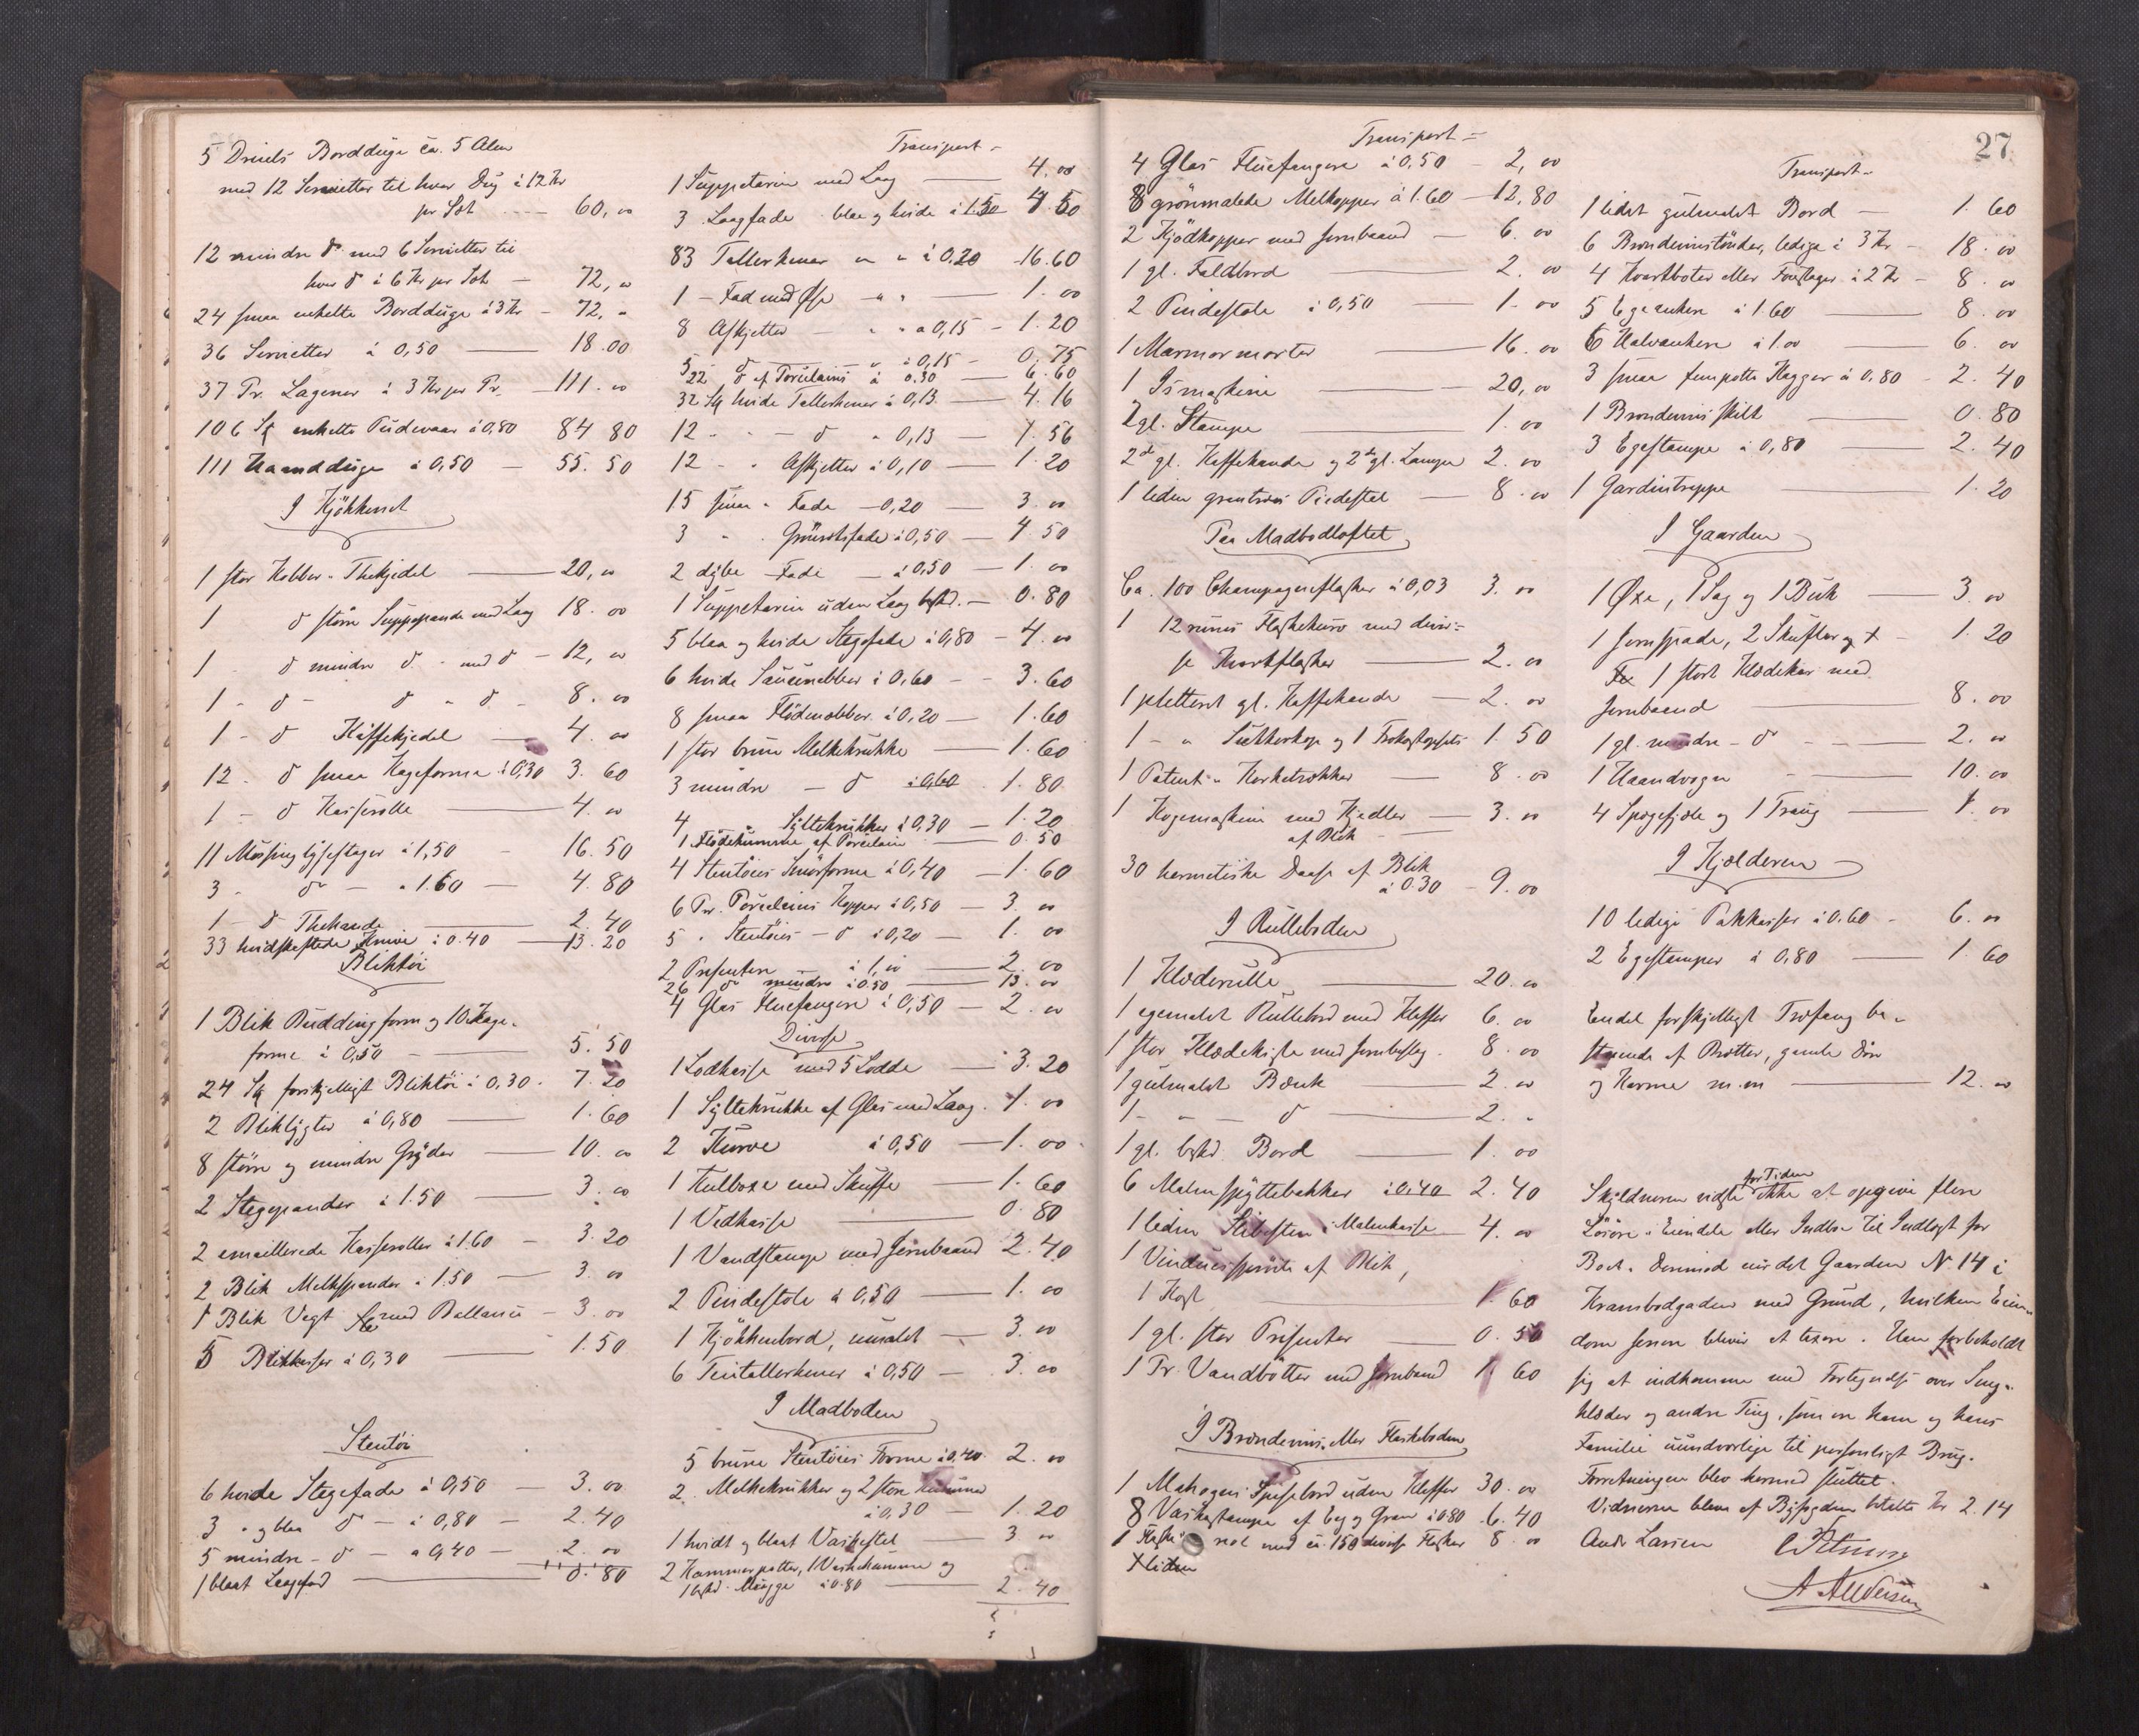 5 Dreiels Bordduge ca. 5 Alen
med 12 Servietter til hver Dug à 12 Kr
pr Sæt ---- 60, 00
12 mindre do med 6 Servietter til
hver do à 6 Kr pr Sæt - 72, 00
24 smaa enkelte Bordduge à 3 Kr - 72, "
36 Servietter à 0,50 — 18.00
37 Pr. Lagener à 3 Kr pr Pr. — 111. 00
106 Stk enkelte Pudevaar à 0,80 84 80
111 Haandduge à 0,50 — 55. 50
I Kjökkenet
1 stor Kobber-Thekjedel — 20, 00
1 do större Suppepande med Laag 18. 00
1 - do mindre do - med do - 12, 00
1 - do - do " do - 8. 00
1 - do Kaffekjedel — 4. 00
12 - do smaa Kageforme à 0,30 3. 60
1 - do Kasserolle — 4. 00
11 Messinglysestager à 1,50 - 16. 50
3 - do - à 1.60 — 4. 80
1 - do Thekande — 2. 40
33 hvidskaftede Knive à 0.40 — 13. 20
Bliktöi
1 Blik Puddingform og 10 Kage-
forme à 0,50 — 5. 50
24 Stk forskjelligt Bliktöi à 0,30 - 7. 20
2 Bliklygter à 0,80 — 1. 60
8 större og mindre Gryder — 10. 00
2 Stegepander à 1.50 — 3. 00
2 emaillerede Kasseroller à 1.60 — 3. 20
2 Blik Melkespander à 1.50 — 3. 00
1 Blik Vegt med Ballance — 3. 00
5 Blikkasser à 0,30 — 1. 50
Stentöi
6 hvide Stegefade à 0,50 — 3. 00
3 " og blaa do - à 0,80 — 2. 40
5 mindre - do - à 0,40 — 2. 00
1 blaat Laagfad — 0. 80
Transport -
1 Suppeterin med Laag — 4. 00
3 Laagfade blaa og hvide à 1.50 4. 50
83 Tallerkener " " à 0,20 - 16. 60
1 - Fad med Öse - " " — 1. 00
8 Assjetter — " " à 0,15 - 1. 20
5 - do — " à 0,15 - 0. 75
22 do af Porcelains à 0.30 — 6. 60
32 Stk hvide Tallerkener à 0,13 — 4. 16
12 - - - do à 0,13 — 1. 56
12 - - Assjetter à 0,10 — 1. 20
15 smaa - Fade - 0,20 — 3. 00
3 - - Grönsotsfade à 0,50 — 1 50
2 dybe - Fade - à 0,50 — 1. 00
1 Suppeterin uden Laag bskd. — 0. 80
5 blaa og hvide Stegefade à 0,80 — 4. 00
6 hvide Saucenebber à 0,60 - - 3. 60
8 smaa Flödenebber à 0,20 — 1. 60
1 stor brun Melkekrukke — 1. 60
3 mindre - do à 0,60 1. 80
4 " Syltekrukker à 0,30 — 1. 20
1 Flödekumme af Porcelain — 0. 50
4 Stentöies Smörforme à 0,40 — 1. 60
6 Pr. Porcelains Kopper à 0,50 — 3. 00
5 " Stentöies - do à 0,20 — 1. 00
2 Presenter à 1,00 — 2. 00
26 do mindre à 0.50 — 13. 00
4 Glas Fluefangere à 0,50 — 2. 00
Diverse
1 Lodkasse med 5 Lodde — 3. 20
1 Syltekrukke af Glas med Laag. 1. 00
2 Kurve à 0,50 — 1. 00
1 Kulboxe med Skuffe — 1. 60
1 Vedkasse — 0. 80
1 Vandstampe med Jernbaand 2. 40
2 Pindestole à 0,50 — 1. 00
1 Kjökkenbord, umalet — 3. 00
6 Tintallerkener à 0,50 — 3. 00
I Madboden
5 brune Stentöies Forme à 0,40. 2. 00
2 Melkekrukker og 2 store Kummer
à 0,30 — 1. 20
1 hvidt og blaat Vaskestel — 3 00
2 Kammerpotter, 1 Vaskekumme og
1 bskd. Mugge à 0.80 — 2. 40
Transport -
4 Glas Fluefangere à 0,50 — 2, 00
8 grönmalede Melkopper à 1.60 — 12, 80
2 Kjödkopper med Jernbaand — 6. 00
1 gl. Foldbord — 2. 00
2 Pindestole à 0,50 — 1. 00
1 Marmormorter — 16. 00
1 Ismaskine — 20, 00
2 gl. Stampe — 1. 00
2 gl. Kaffekande og 2 gl. Lamper 2. 00
1 liden grentræs Piedestal — 8. 00
Paa Madbodloftet
Ca. 100 Champagneflasker à 0,03 3. 00
1 12 rums Flaskekurv med diver-
se Kvartflasker — 2. 00
1 pletteret gl. Kaffekande — 2. 00
1 - " Sukkerkop og 1 Frokostopsats 1. 50
1 Patent - Korketrækker — 8. 00
1 Kogemaskine med Kjedler — 3. 00
af Blik
30 hermetiske Daase af Blik
à 0.30 - 9. 00
I Rulleboden
1 Klæderulle — 20. 00
1 egemalet Rullebord med Kleffer 6. 00
1 stor Klædekiste med Jernbeslag. 8. 00
1 gulmalet Bænk — 2. 00
1 - " do — 2. "
1 gl. bskd Bord — 1. 00
6 Malmspyttebakker à 0,40 2. 40
1 liden Slibesten i Malmkasse 4. 00
1 Vinduessprøite af Blik,
1 Kost — 1. 60
1 gl. stor Presenter — 0. 50
1 Pr. Vandbötter med Jernbaand 1. 60
I Brændevins- eller Flaskeboden
1 Mahogeni Spisebord uden Kleffer 30. 00
8 Vaskestamper af Eg og Gran à 0.80 6. 40
1 Flaske reol med ca. 150 diverse Flasker 8. 00
x liden
27
Transport -
1 lidet gulmalet Bord — 1. 60
6 Brændevinstönder, ledige à 3 Kr - 18. 00
4 Kvartboter eller Fustager à 2 Kr - 8. 00
5 Egeankere à 1.60 — 8. 00
6 Halvankere à 1.00 — 6. 00
3 smaa fempotte Kagger à 0,80 - 2. 40
1 Brændevinsskilt — 0. 80
3 Egestampe à 0,80 — 2. 40
1 Gardintrappe — 1. 20
I Gaarden
1 Øxe, 1 Sag og 1 Buk — 3. 00
1 Jernspade, 2 Skufler og x - 1. 20
1 stort Klædekar med
Jernbaand — 8. 00
1 gl. mindre - do - - — 2. 00
1 Haandvogn — 10. 00
4 Spøgefjæle og 1 Traug — 1. 00
I Kjælderen
10 ledige Pakkasser à 0.60 - 6. 00
2 Egestamper à 0,80 — 1. 60
Endel forskjelligt Træfang be-
staaende af Brætter, gamle Döre
og Karme m. m — 12. 00
for Tiden
Skyldneren vidste ikke at opgive flere
Lösöre - Eiendele eller Indbo til Indlægt for
Boet. Derimod eier det Gaarden No 14 i
Krambodgaden med Grund, hvilken Eien-
dom senere bliver at taxere. Han forbeholdt
sig at indkomme med Fortegnelse over Seng-
klæder og andre Ting, som er ham og hans
Familie uundværlige til personligt Brug.
Forretningen blev hermed sluttet.
Vidnerne bleve af Byfogden betalte Kr 2.14
Andr Larsen
A Andersen